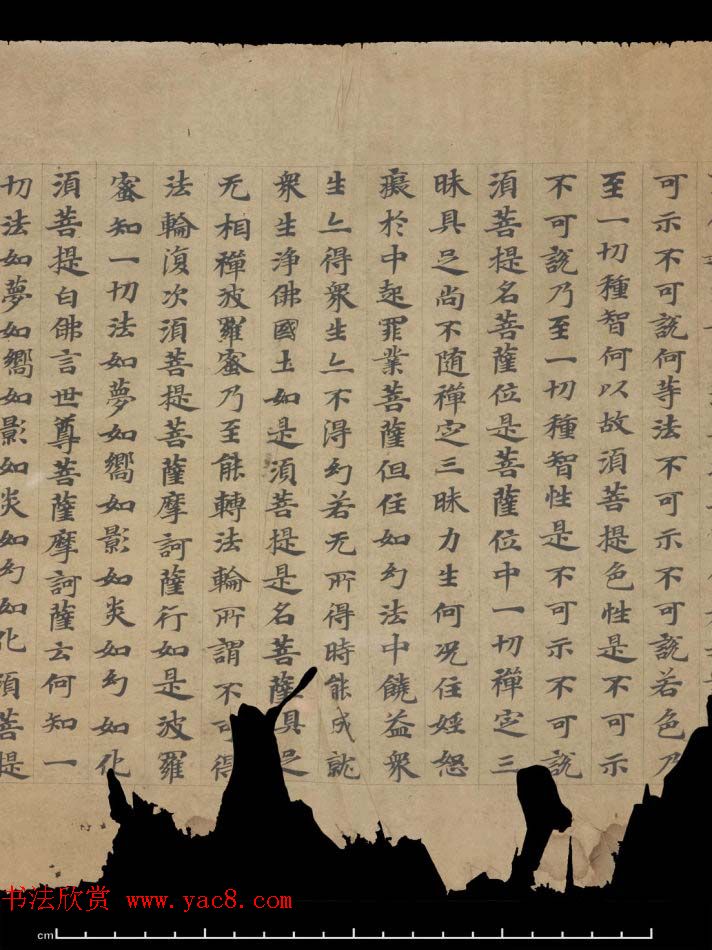 可示不可說何等法不可示不可說若色乃
至一切種智何以故湏菩提色性是不可示
不可說乃至一切種智性是不可示不可說
湏菩提名菩薩位是菩薩位中一切禪定三
昧具足尚不随禪定三昧力生何况住婬怒
癡於中起罪業菩薩但住如幻法中饒益衆
生亦得衆生亦不得幻若无所得時能成就
衆生浄佛國土如是湏菩提是名菩薩具足
无相禪波羅蜜乃至能轉法輪所謂不可得
法輪復次湏菩提菩薩摩訶薩行如是波羅
蜜知一切法如夢如嚮如影如炎如幻如化
湏菩提白佛言世尊菩薩摩訶薩云何知一
切法如夢如嚮如影如炎如幻如化湏菩提
书法欣赏 www.yac8.com
cm